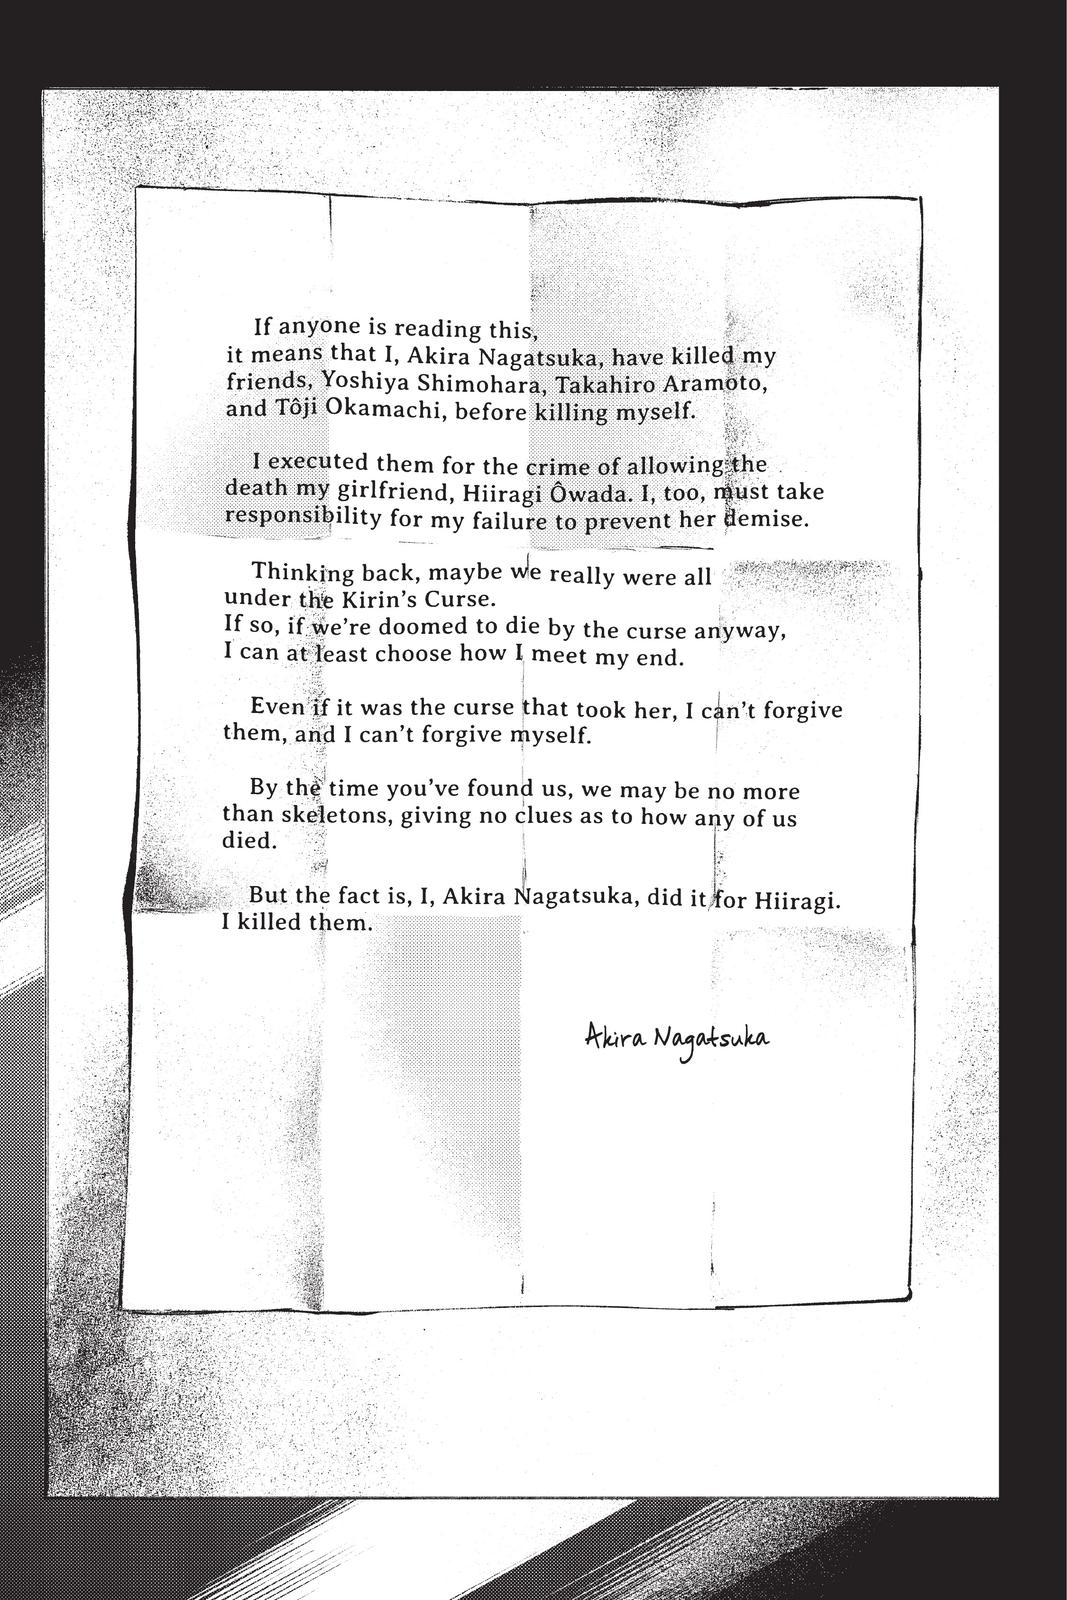 If anyone is reading this,
it means that I, Akira Nagatsuka, have killed my
friends, Yoshiya Shimohara, Takahiro Aramoto,
and Tôji Okamachi, before killing myself.
I executed them for the crime of allowing the
death my girlfriend, Hiiragi Ôwada. I, too, must take
responsibility for my failure to prevent her demise.
Thinking back, maybe we really were all
under the Kirin’s Curse.
If so, if we’re doomed to die by the curse anyway,
I can at least choose how I meet my end.
Even if it was the curse that took her, I can’t forgive
them, and I can’t forgive myself.
By the time you’ve found us, we may be no more
than skeletons, giving no clues as to how any of us
died.
But the fact is, I, Akira Nagatsuka, did it for Hiiragi.
I killed them.
Akira Nagatsuka